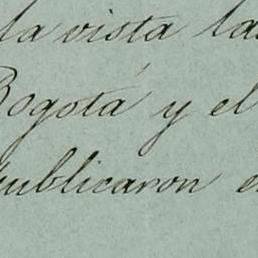 la vista la
Bogotá y el
publicaron e